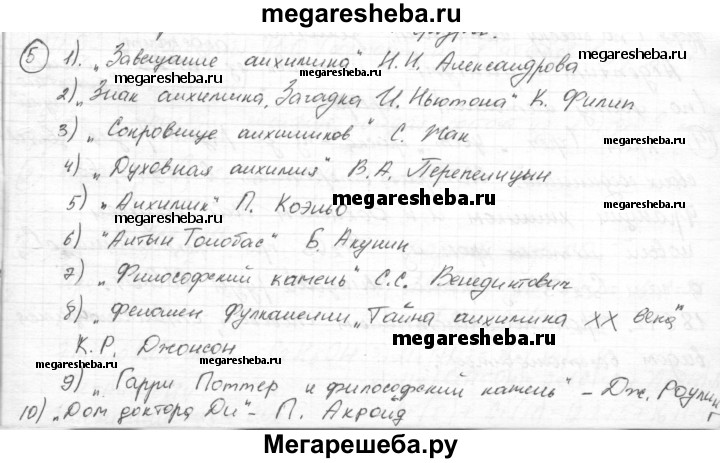 megaresheba.ru
5 1). „Завещание алхимика" Н.Н. Александрова
megaresheba.ru megaresheba.ru
2) „Знак алхимика, Загадка И. Ньютона" К. Филип
3) „Сокровище алхимиков" С. Жак
megaresheba.ru
4) „Духовная алхимия" В.А. Перепелицын
megaresheba.ru
5) „Алхимик" П. Коэльо
megaresheba.ru
6) "Алтын Толобас" Б. Акунин
7) „Философский камень" С.С. Венедиктович
megaresheba.ru
8) „Феномен Фулканелли „Тайна алхимика XX века"
megaresheba.ru
К.Р. Джонсон
megaresheba.ru
9) „Гарри Поттер и философский камень" – Дж. Роулинг
10) „Дом доктора Ди" – П. Акройд
Мегарешеба.ру